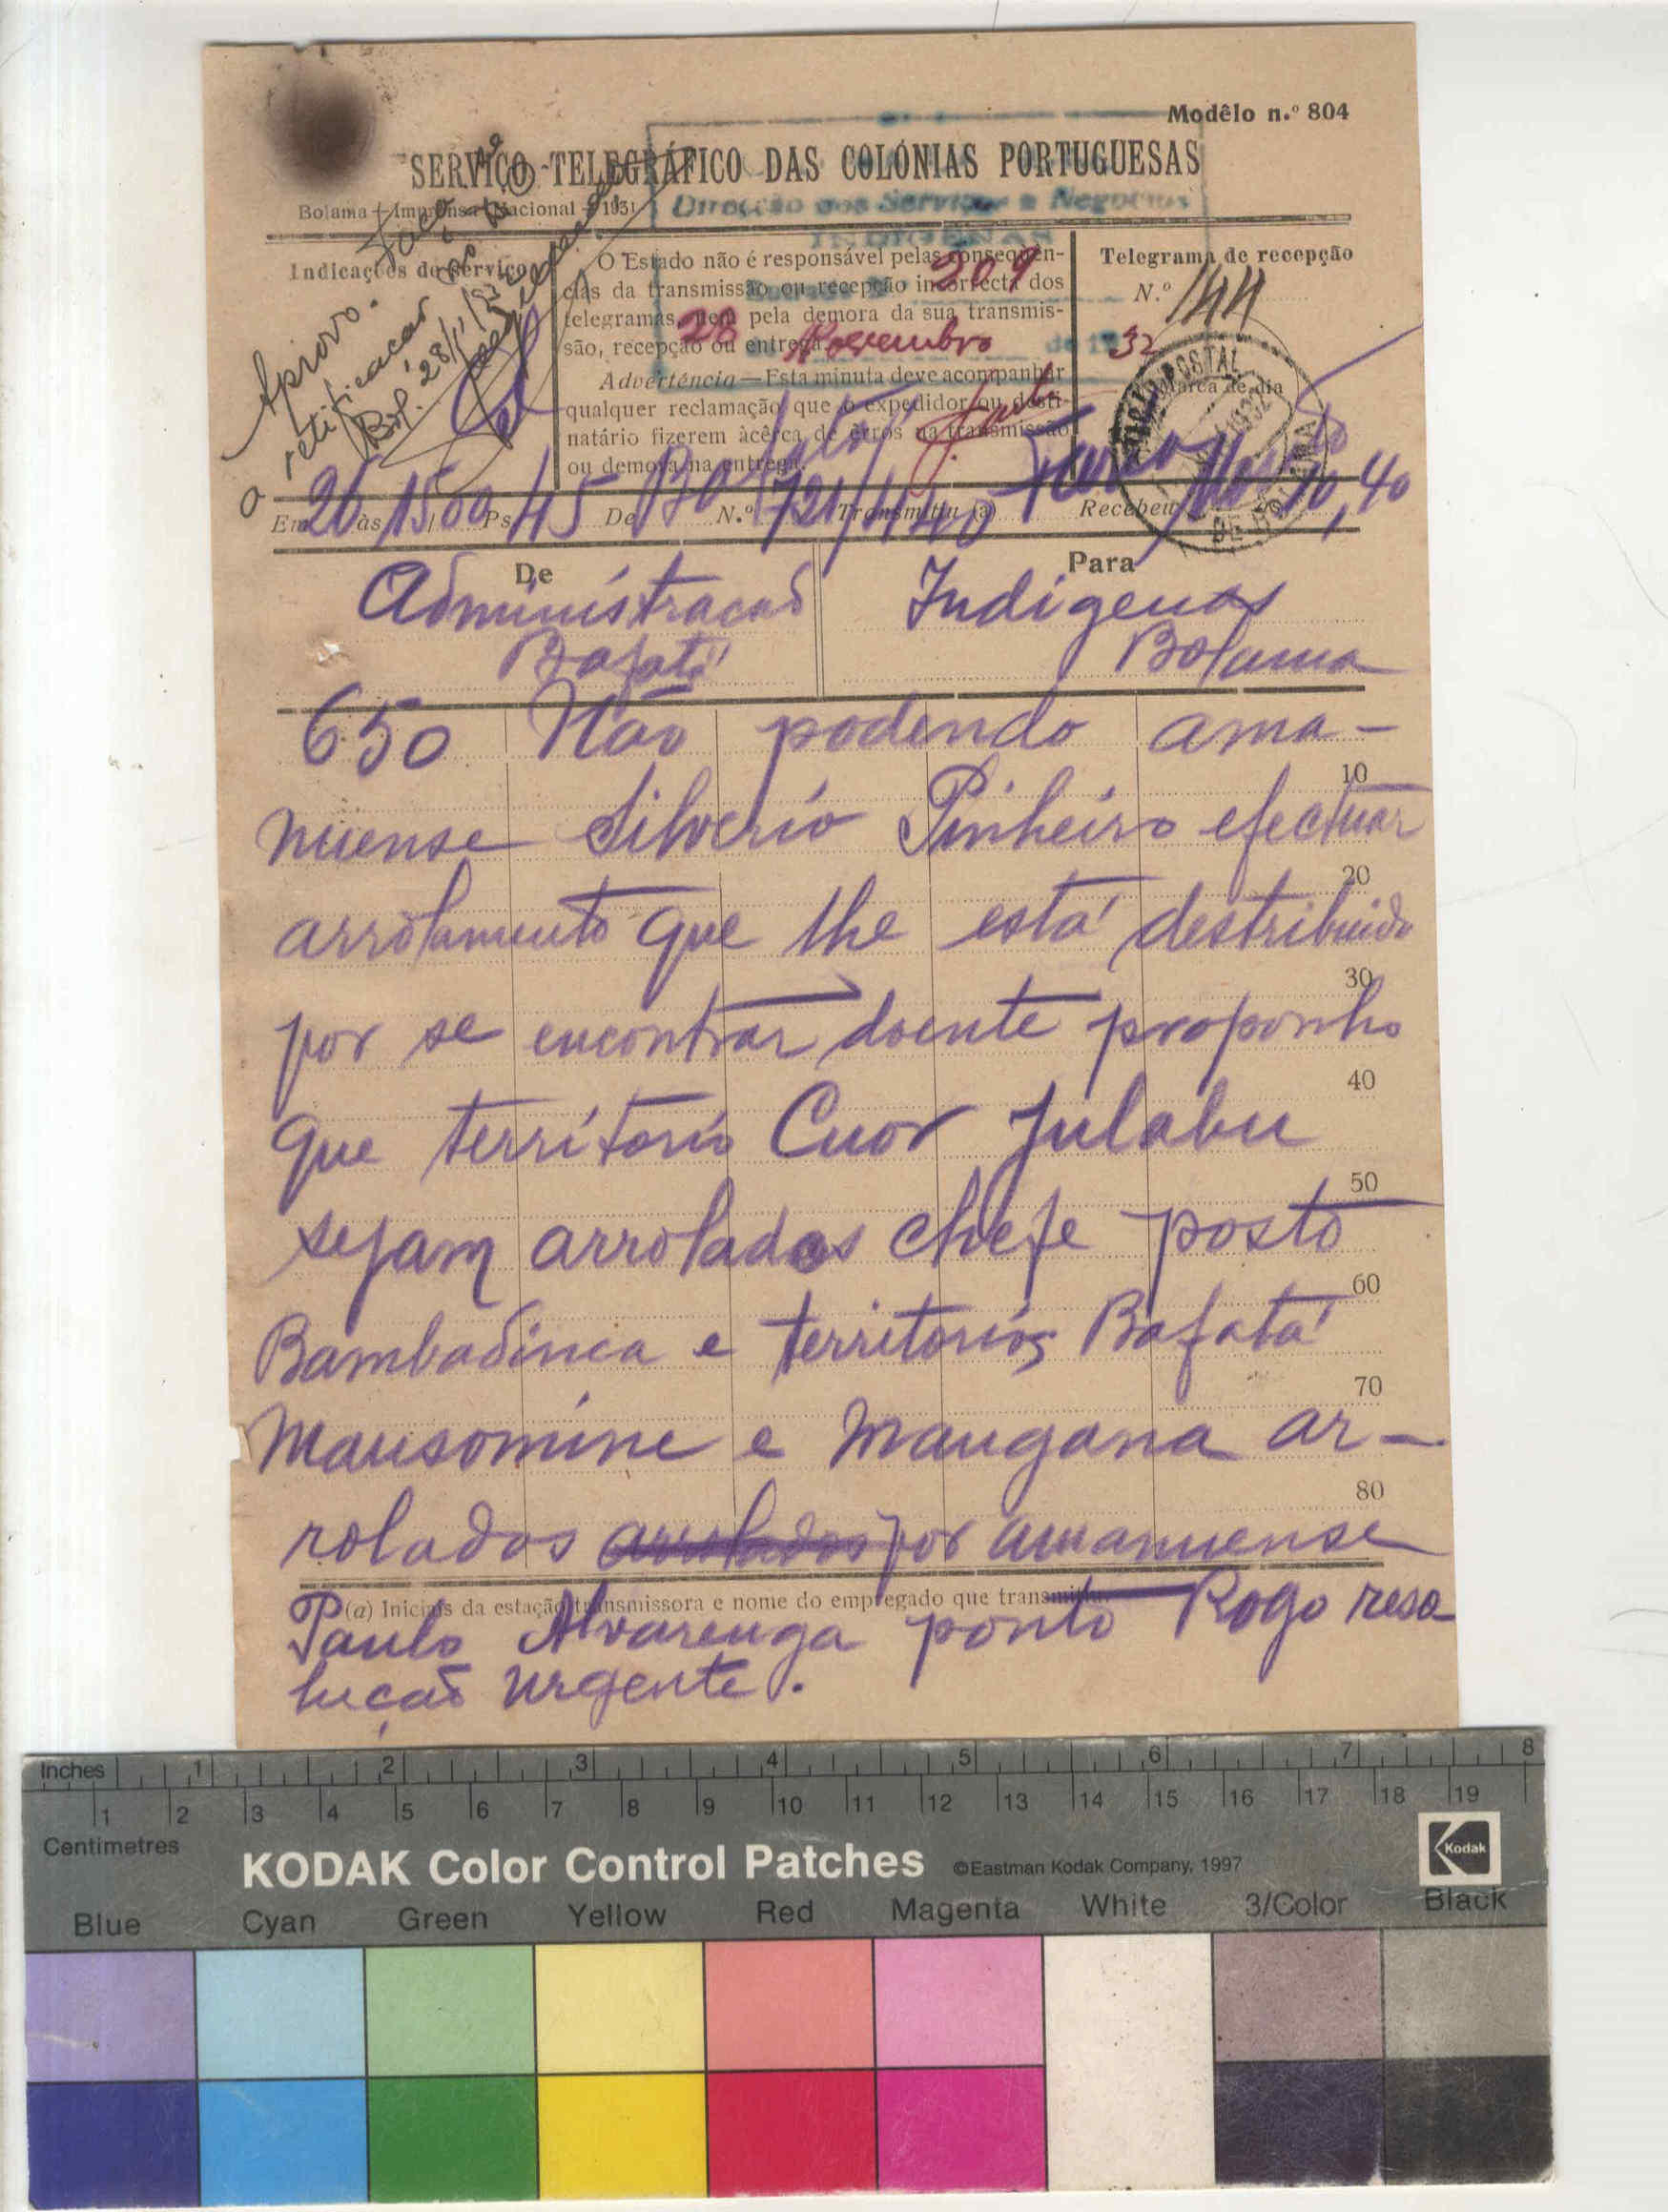 Modêlo n.º 804
SERVIÇO TELEGRÁFICO DAS COLÓNIAS PORTUGUESAS
Bolama — Imprensa Nacional — 1931
Direcção dos Serviços e Negocios
INDIGENAS
209
28 Novembro de 1932
Aprovo.
retificação
Bol. 28/11/32
Indicações de serviço
O Estado não é responsável pelas conseqüên-
cias da transmissão ou recepção incorrecta dos
telegramas, nem pela demora da sua transmis-
são, recepção ou entrega.
Advertência — Esta minuta deve acompanhar
qualquer reclamação que o expedidor ou desti-
natário fizerem àcêrca de êrros na transmissão
ou demora na entrega.
Telegrama de recepção
N.º 144
Marca de dia
POSTAL
1932
Em 26 às 1500 Ps. 45 De Bafatá N.º 721 Transmitiu (a) Recebeu 10,40
De
Administração
Bafatá
Para
Indigenas
Bolama
650 Não podendo ama-
10
nuense Silverio Pinheiro efectuar
20
arrolamento que lhe está destribuido
30
por se encontrar doente proponho
40
que territorio Cuor Julabu
50
sejam arrolados chefe posto
60
Bambadinca e territorios Bafatá
70
Mansomine e Mangana ar-
80
rolados arrolados por amanuense
(a) Iniciais da estação transmissora e nome do empregado que transmitiu.
Paulo Alvarenga ponto Rogo reso
lução urgente.
Inches 1 2 3 4 5 6 7 8
1 2 3 4 5 6 7 8 9 10 11 12 13 14 15 16 17 18 19
Centimetres
KODAK Color Control Patches ©Eastman Kodak Company, 1997 Kodak
Blue Cyan Green Yellow Red Magenta White 3/Color Black